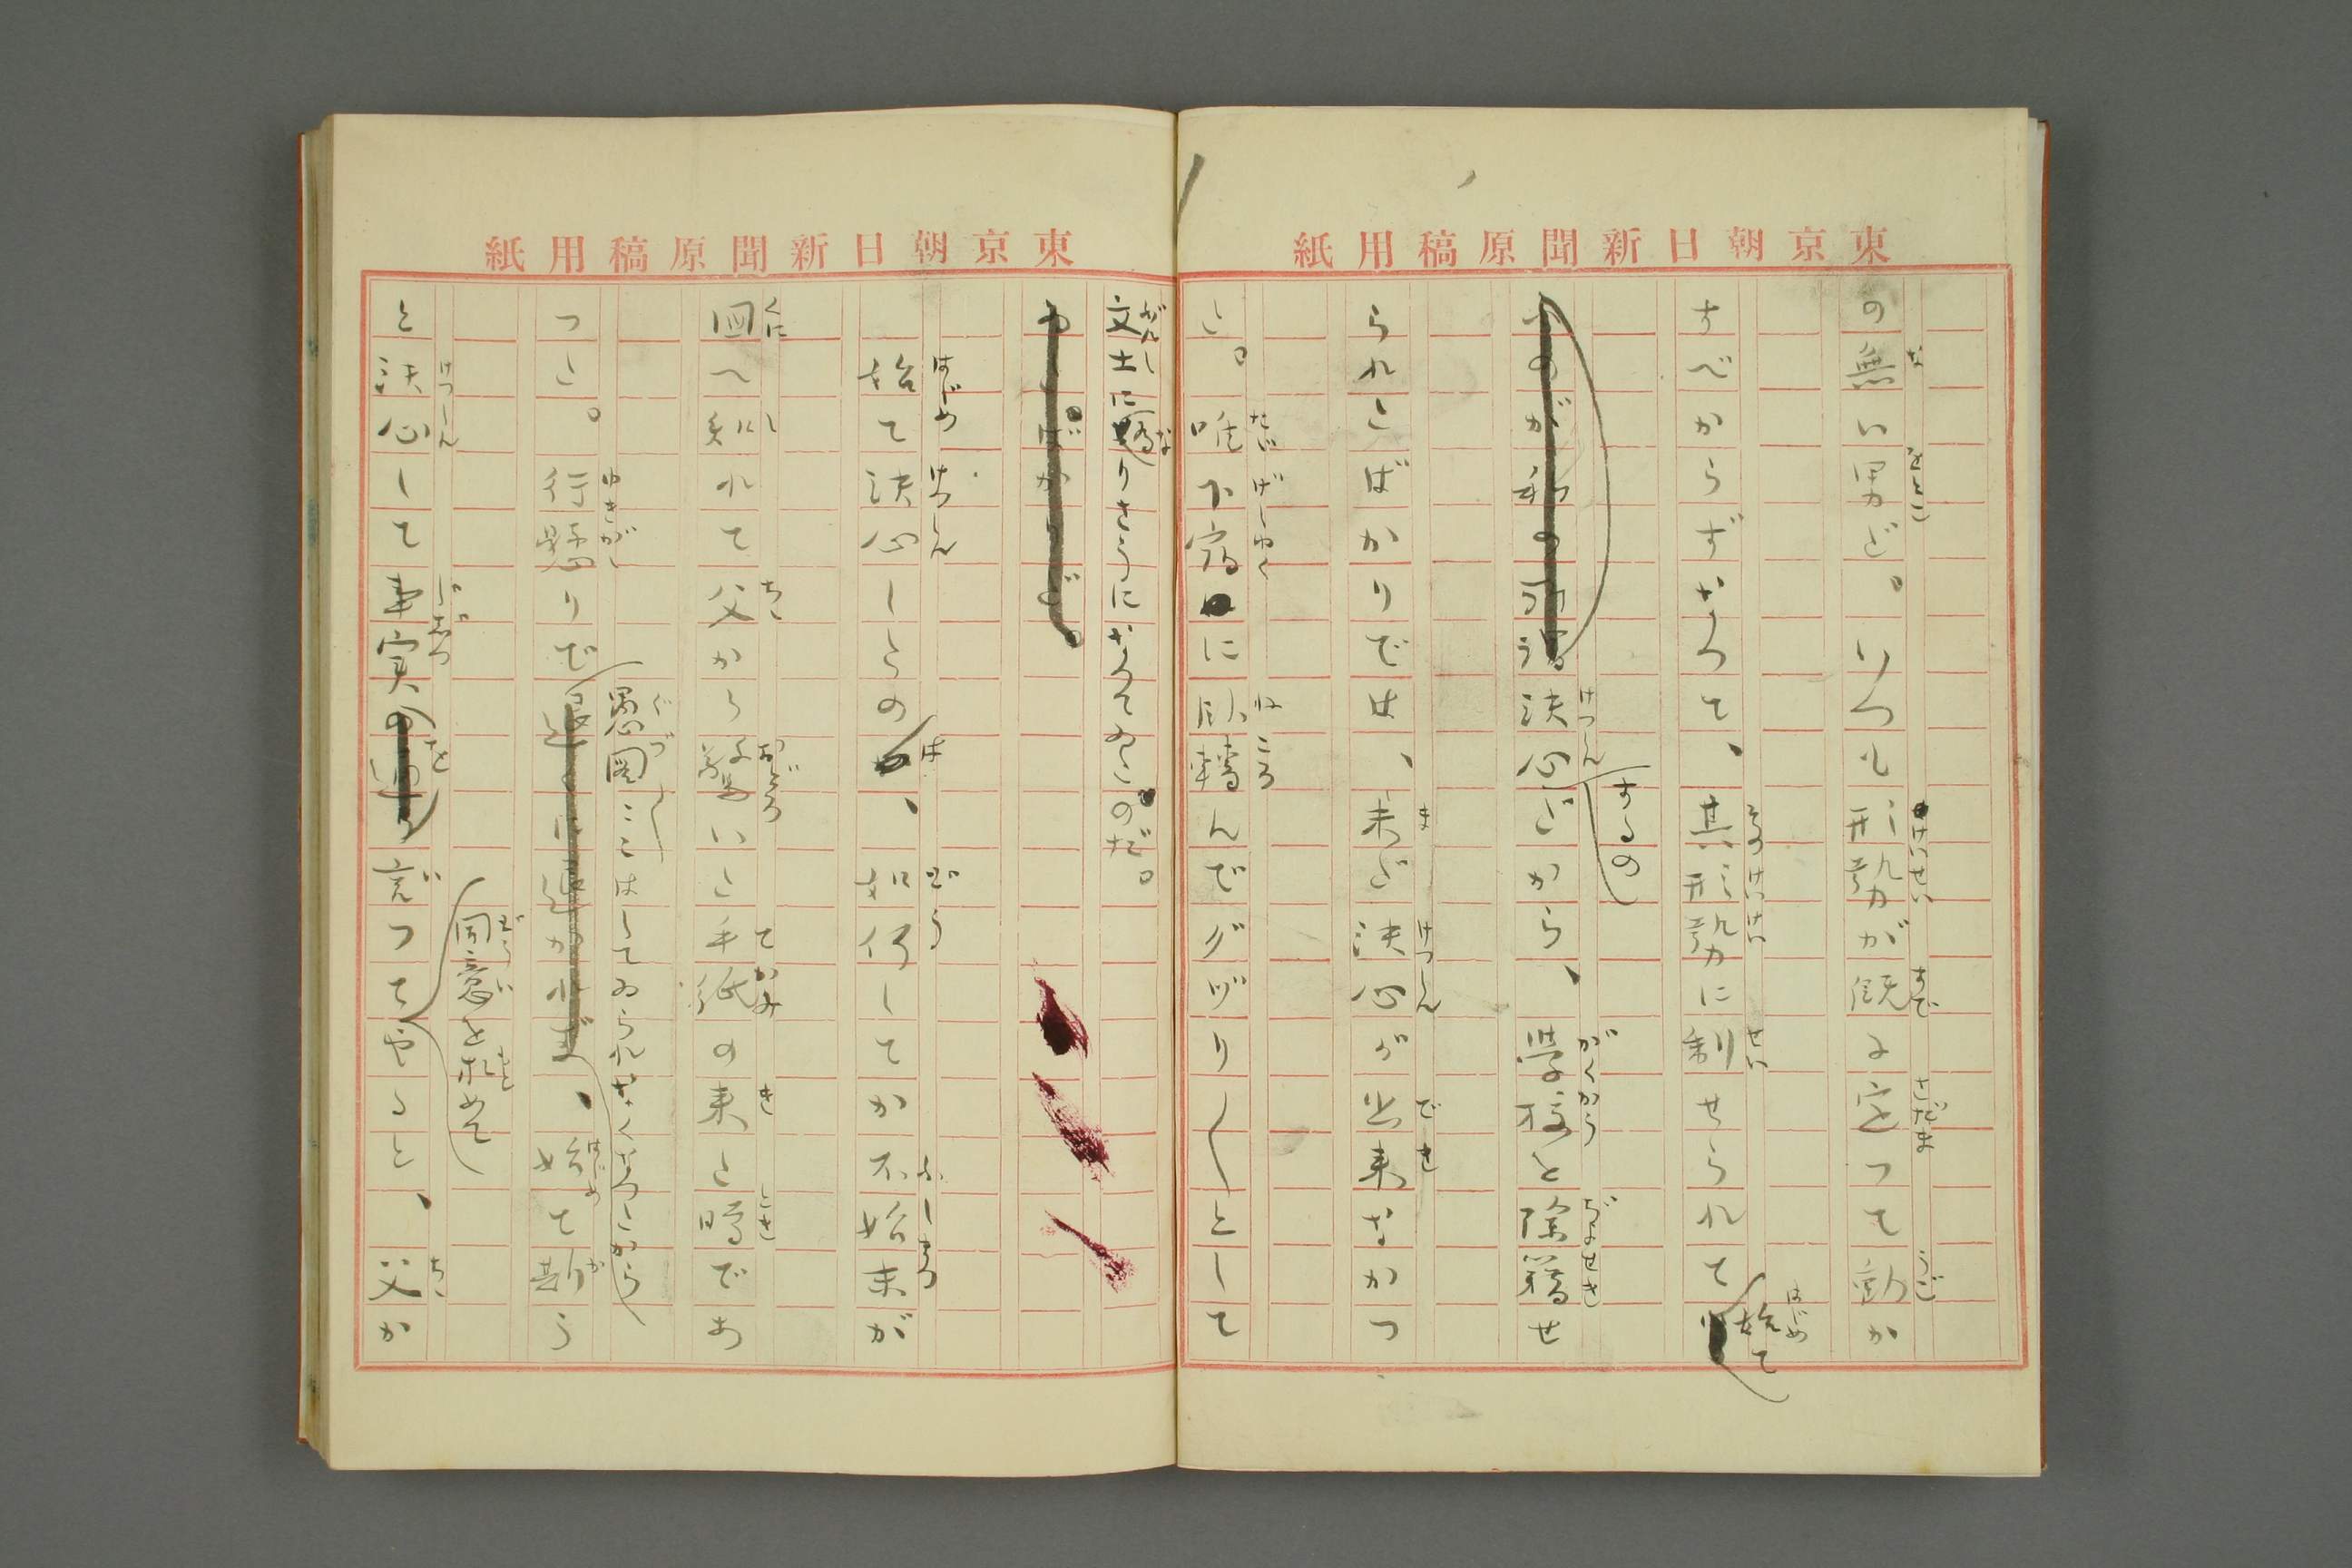 東京朝日新聞原稿用紙
の無い男だ。いつも形勢が既に定つて動か
すべからずなつて、其形勢に制せられて始て
決心するのだから、学校を除籍せ
られたばかりでは、未だ決心が出来なかつ
た。唯下宿に臥転んでグヅリ〱として
東京朝日新聞原稿用紙
文士に為りさうになつてゐたのだ。
始て決心したのは、如何してか不始末が
国へ知れて父から驚いた手紙の来た時であ
つた。行懸りで愚図〱はしてゐられなくなつたから、始て斯う
と決心して事実を言つて同意を求めてやると、父か